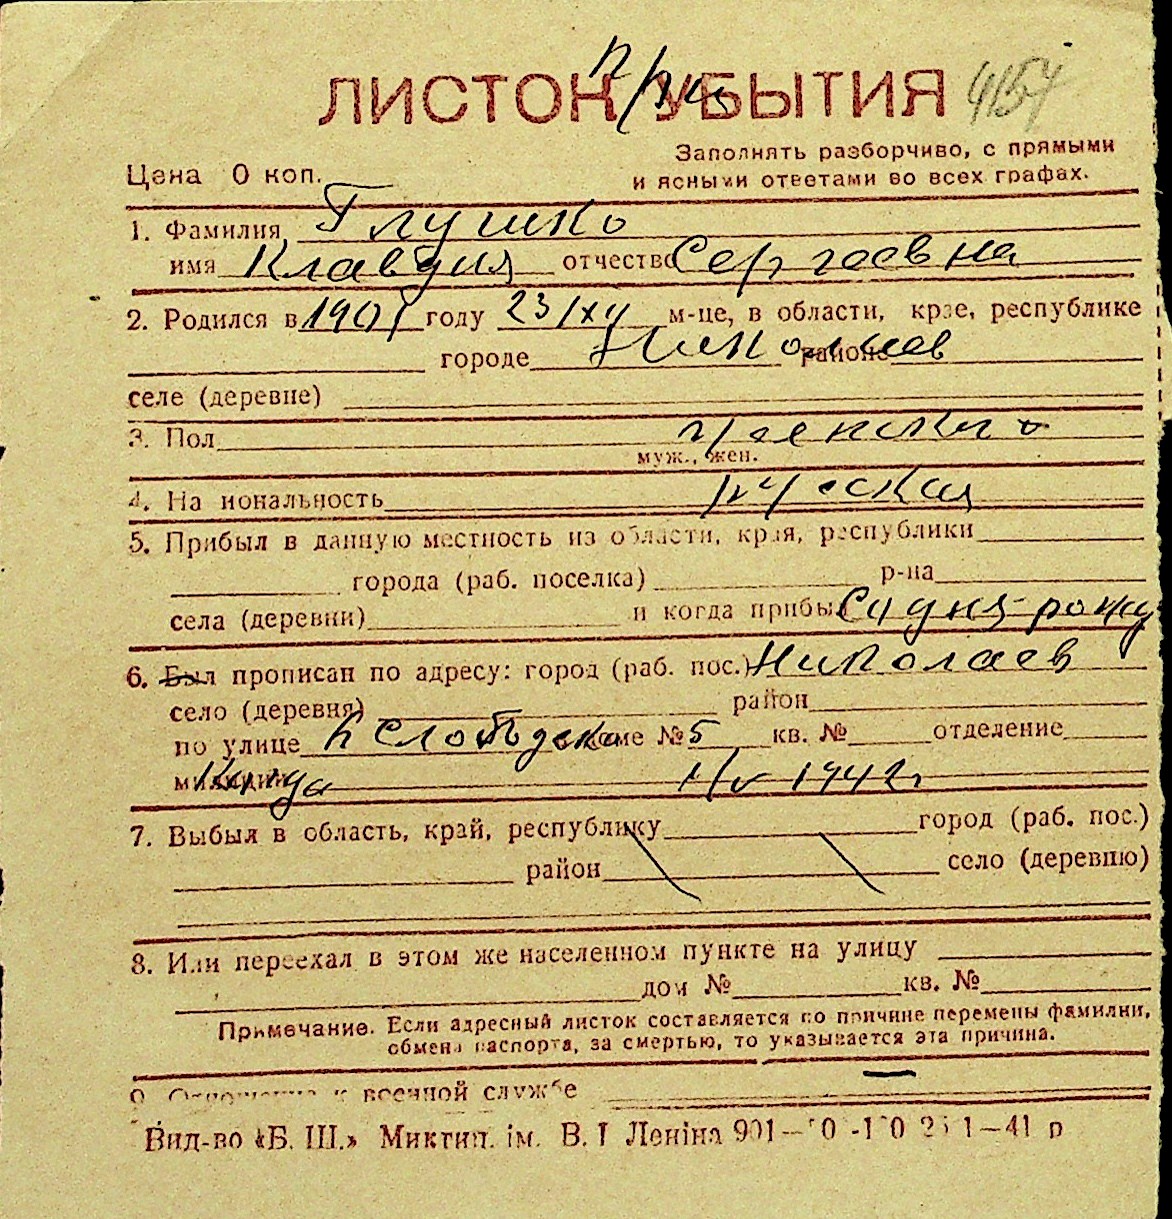 ЛИСТОК УБЫТИЯ 4154
Заполнять разборчиво, с прямыми
Цена 0 коп.
и ясными ответами во всех графах.
1. Фамилия Глушко
имя Клавдия отчество Сергеевна
2. Родился в 1901 году 23/XII м-це, в области, крае, республике
городе Николаев районе
селе (деревне)
3. Пол женский
муж., жен.
4. На иональность русская
5. Прибыл в данную местность из области, края, республики
города (раб. поселка) р-на
села (деревни) и когда прибыл С дня рожд
6. Был прописан по адресу: город (раб. пос.) Николаев
село (деревня) район
по улице Слободска доме № 5 кв. № отделение
милиции Когда 1942г
7. Выбыл в область, край, республику город (раб. пос.)
район село (деревню)
8. Или переехал в этом же населенном пункте на улицу
дом № кв. №
Примечание. Если адресный листок составляется по причине перемены фамилии,
обмена паспорта, за смертью, то указывается эта причина.
9. Отношение к военной службе
Вид-во «Б. Ш.» Миктип. ім. В. І Леніна 901